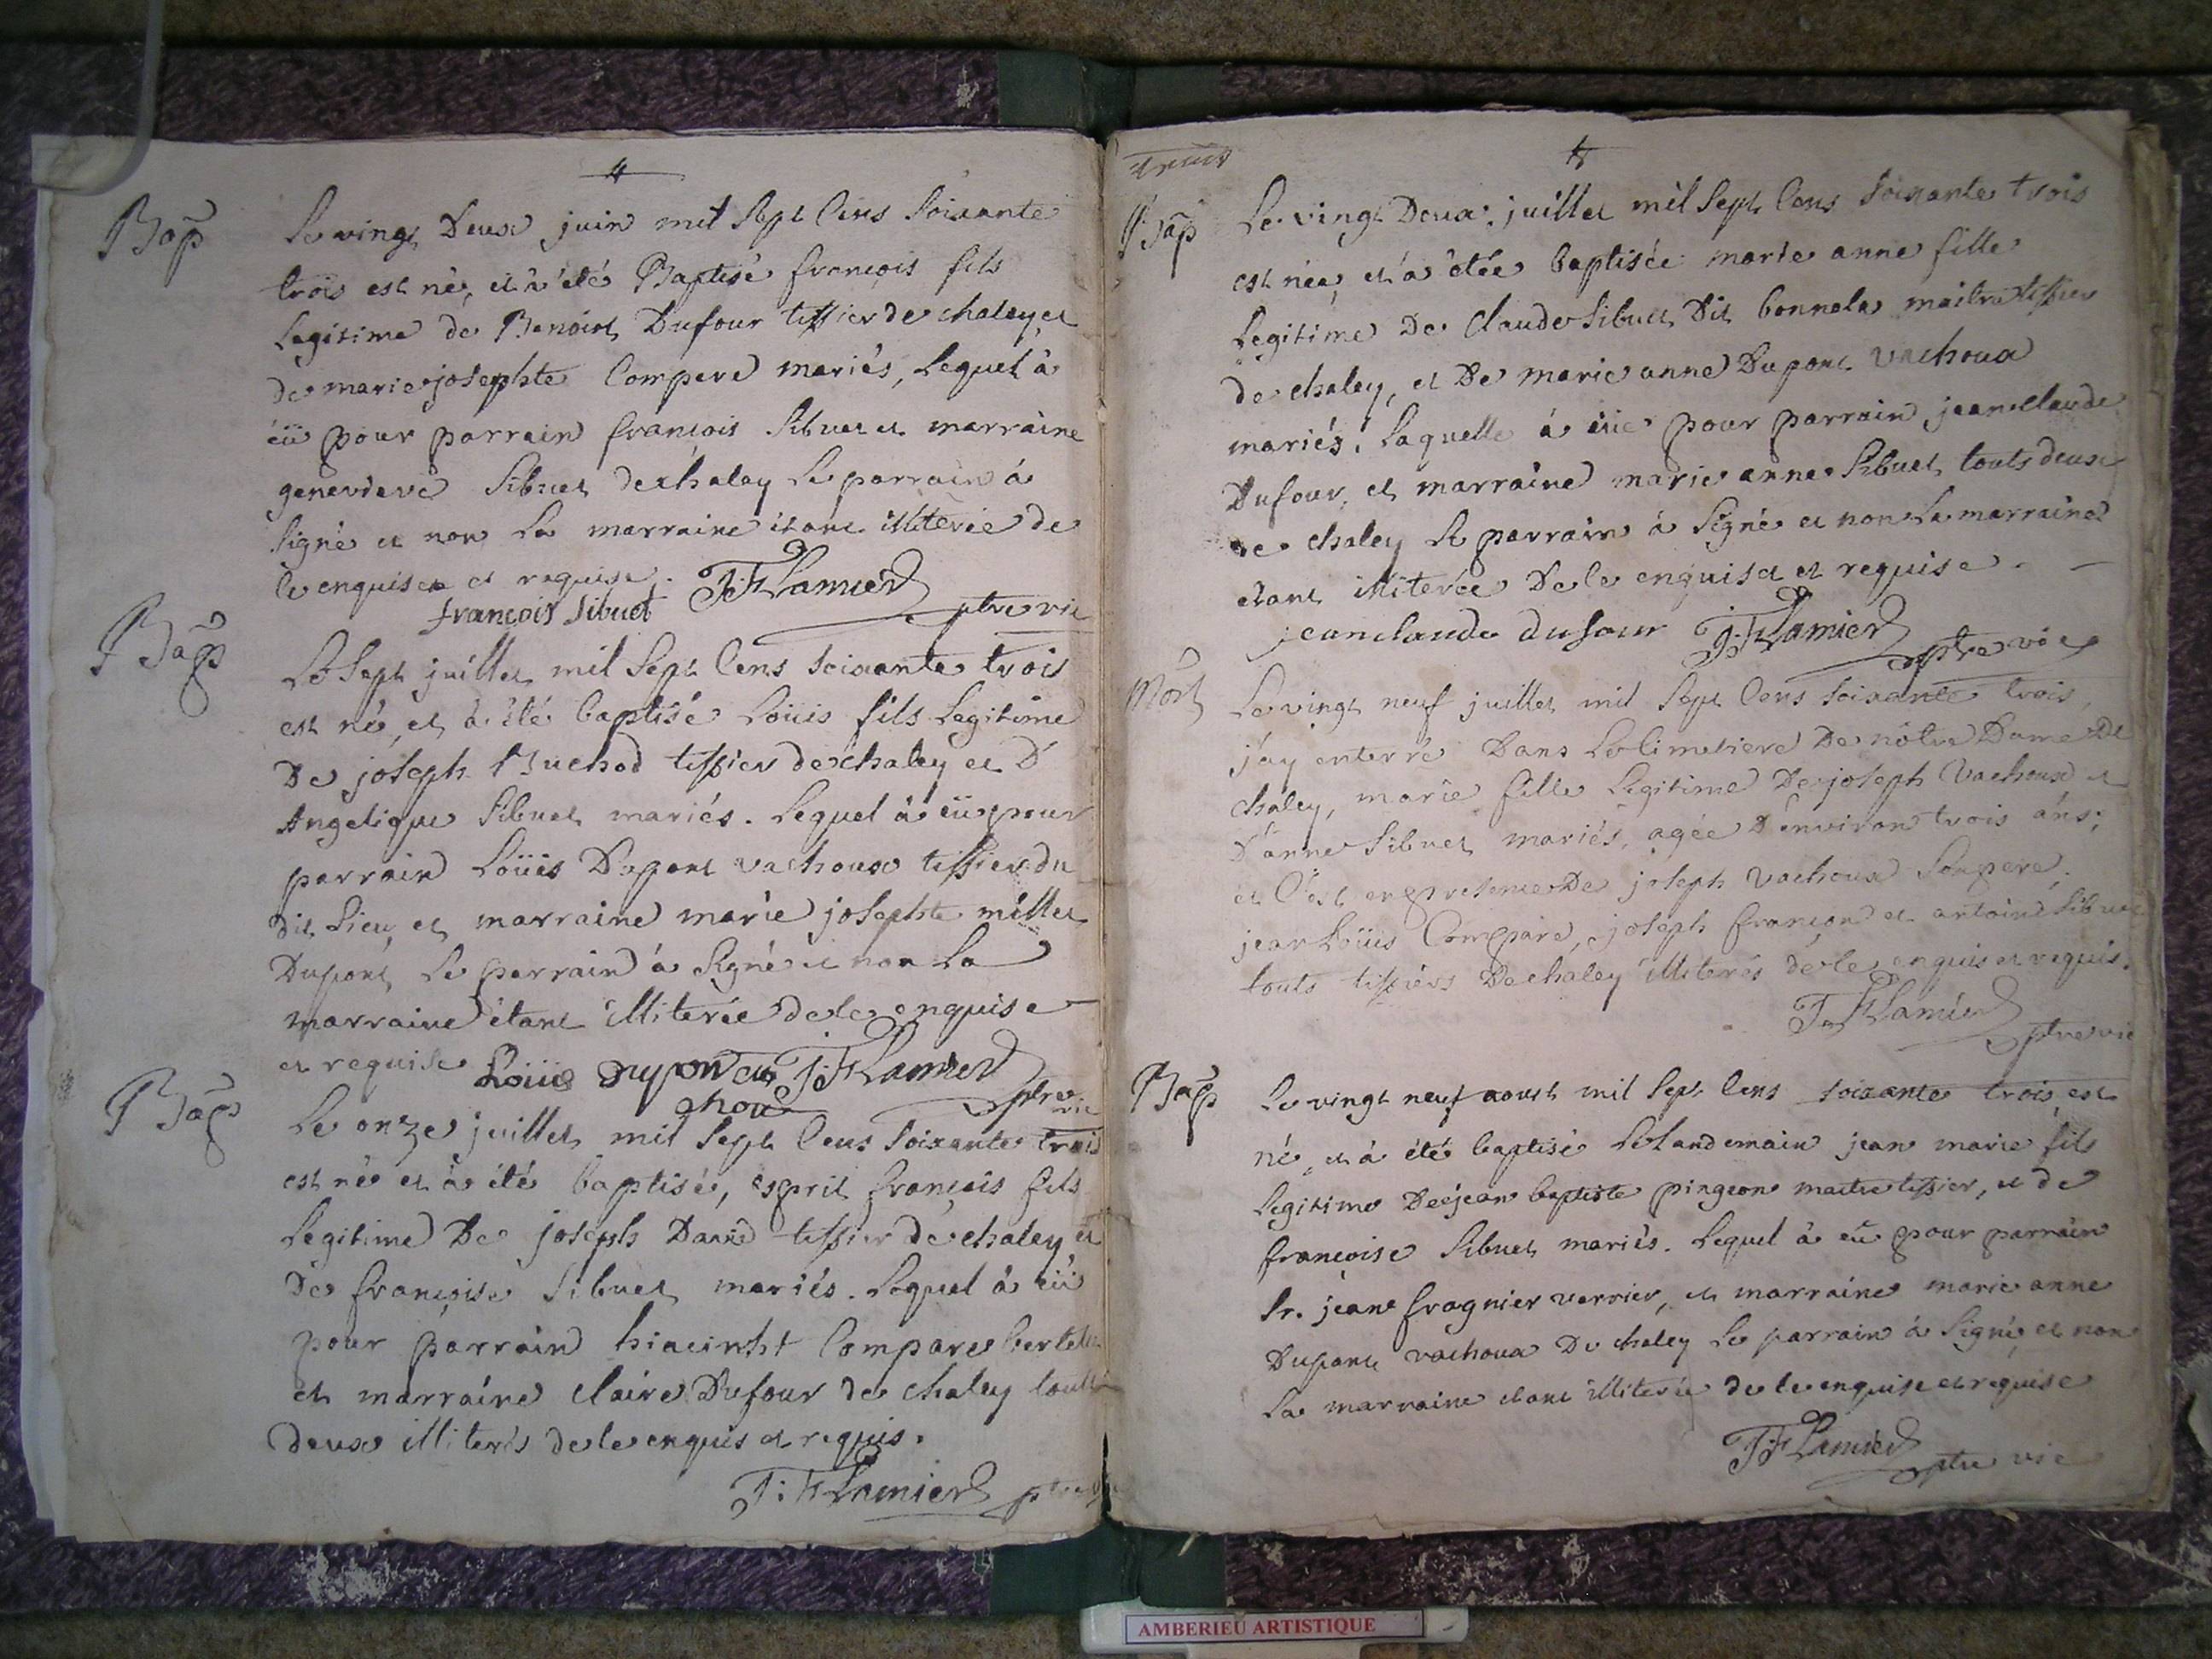 Bap
Le vingt Deux juin mil Sept Cens Soixante
trois est né, et à été Baptisé françois fils
Legitime de Benoist Dufour tissier de chaley, et
de marie josephte Compere mariés, Lequel à
eü pour parrain françois Sibuet et marraine
genevieve Sibuet de chaley Le parrain à
Signé et non La marraine étant illiterée de
le enquise et requise.
françois sibuet J:F Lamier ptre vic
Bap
Le Sept juillet mil Sept Cens Soixante trois
est né, et à été baptisé Loüis fils Legitime
De joseph Buchod tissier de chaley et D'
Angelique Sibuet mariés. Lequel à eü pour
parrain Loüis Dupont vachoux tissier du
dit Lieu, et marraine marie josephte millet
Dupont, Le parrain à Signé et non La
marraine étant illiterée de le enquise
et requise Loüis Dupon va J:F Lamier
choux ptre vic
Bap
Le onze juillet mil Sept Cens Soixante trois
est né et à été baptisé, esprit françois fils
Legitime De joseph David tissier de chaley et
De françoise Sibuet mariés. Lequel à eü
pour parrain hiacinht Compare
et marraine claire Dufour de chaley touts
deux illiterés de le enquis et requis.
J:F Lamier ptre
trois
Bap
Le vingt Deux juillet mil Sept Cens Soixante trois
est née, et à étée baptisée marie anne fille
Legitime De Claude Sibuet Dit bonnela maitre tissier
de chaley, et De marie anne Dupont vachoux
mariés. Laquelle à eüe pour parrain jean claude
Dufour, et marraine marie anne Sibuet touts deux
de chaley Le parrain à Signé et non La marraine
étant illiterée De le enquise et requise.
jean claude dufour J:F Lamier ptre vic
Mort
Le vingt neuf juillet mil Sept Cens Soixante trois,
j'ay enterré Dans Le Cimetiere De nôtre Dame De
chaley, marie fille Legitime De joseph Vachoux et
D'anne Sibuet mariés, agée D'environ trois ans;
et C'est en presence De joseph Vachoux Son pere,
jean Loüis Compare, joseph françon et antoine Sibuet
touts tissiers De chaley illiterés de le enquis et requis.
J:F Lamier
ptre vic
Bap
Le vingt neuf aoust mil Sept Cens soixante trois, est
né, et à été baptisé Le Landemain jean marie fils
Legitime De jean baptiste pingeon maitre tissier, et de
françoise Sibuet mariés. Lequel à eü pour parrain
Sr. jean fragnier verrier, et marraine marie anne
Dupont vachoux De chaley Le parrain à Signé, et non
La marraine étant illiterée de le enquise et requise
J:F Lamier
ptre vic
AMBERIEU ARTISTIQUE